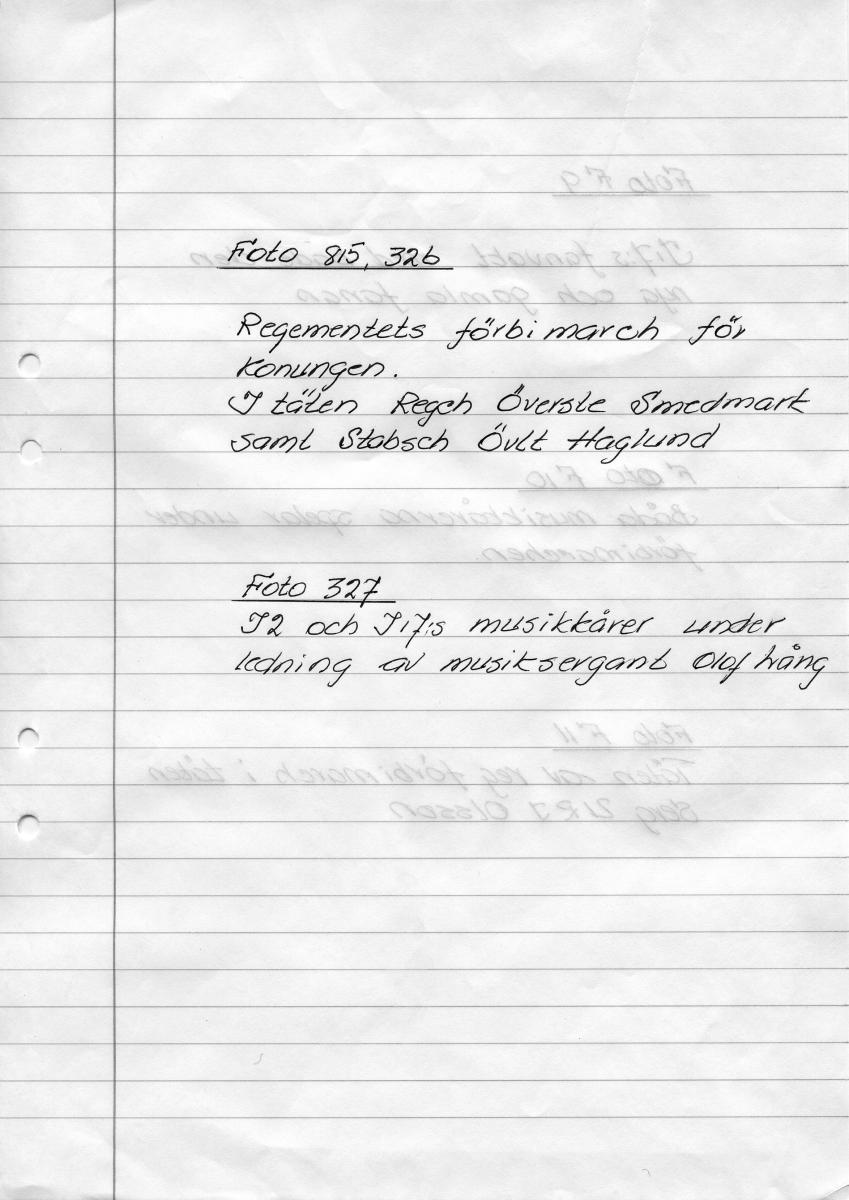 Foto 815, 326
Regementets förbimarch för
Konungen.
I täten Regch Överste Smedmark
samt Stabsch Övlt Haglund
Foto 327
I2 och I17:s musikkårer under
ledning av musiksergant Olof Lång